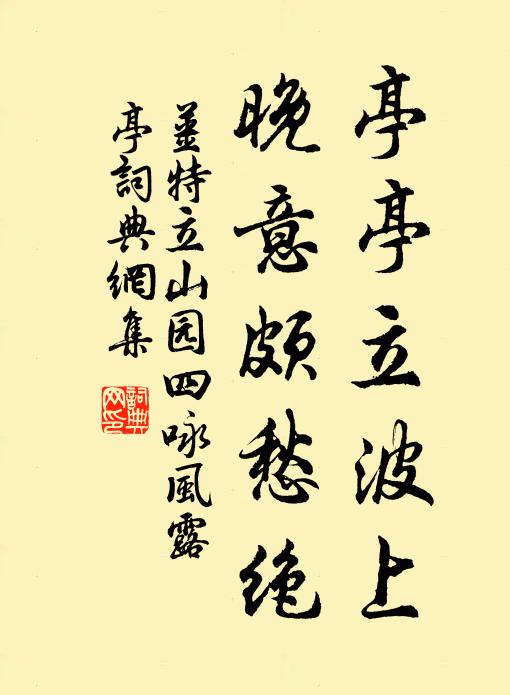 亭亭立波上
晚意頗愁絶
姜特立山园四咏風露
亭詞典網集
詞典
网印